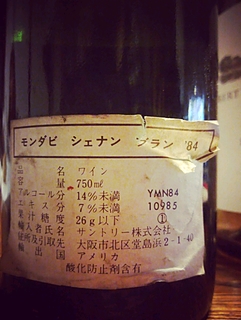 モンダビ シェナン ブラン '84
品 名 ワイン
容 量 750mℓ
アルコール分 14%未満 YMN84
エキス分 7%未満 10985
果汁糖度 26g以下 ①
輸入者氏名 サントリー株式会社
住所及引取先 大阪市北区堂島浜2-1-40
輸出国 アメリカ
酸化防止剤含有